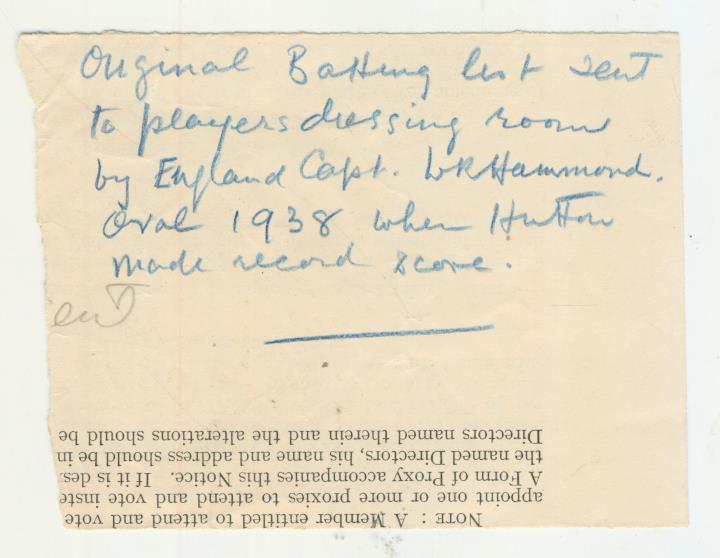 Original Batting list sent
to players dressing room
by England Capt. WR Hammond.
Oval 1938 when Hutton
made record score.
ent
NOTE : A Member entitled to attend and vote
appoint one or more proxies to attend and vote inste
A Form of Proxy accompanies this Notice. If it is des
the named Directors, his name and address should be in
Directors named therein and the alterations should be